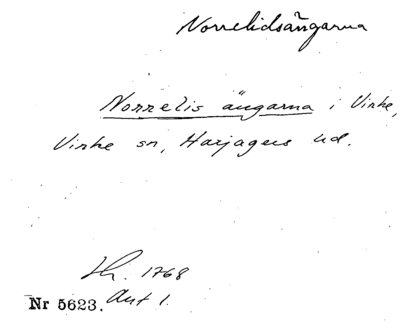 Norrelidsängarna
Norrelis ängarna i Virke,
Virke sn, Harjagers hd.
Lh. 1768
Akt 1.
Nr 5623.